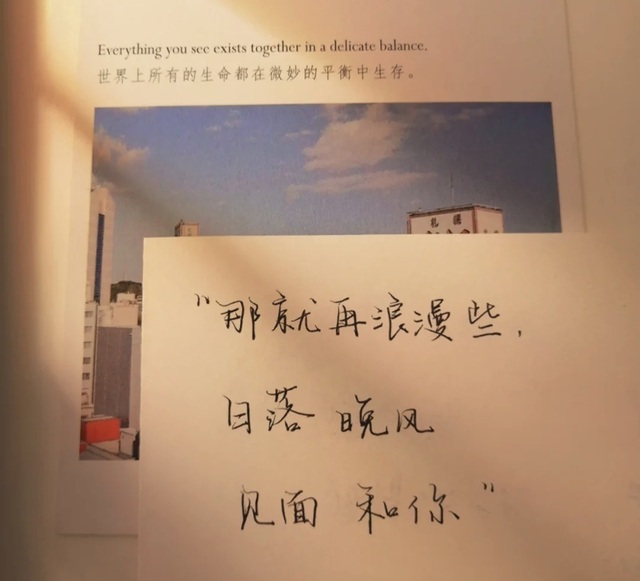 Everything you see exists together in a delicate balance.
世界上所有的生命都在微妙的平衡中生存。
札幌
"那就再浪漫些,
日落 晚风
见面 和你"